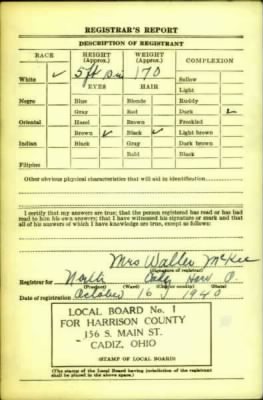 REGISTRAR'S REPORT
DESCRIPTION OF REGISTRANT
RACE HEIGHT (Approx.) WEIGHT (Approx.) COMPLEXION
White ✓ 5 ft 170 Sallow
EYES HAIR Light
Negro Blue Blonde Ruddy
Gray Red Dark ✓
Oriental Hazel Brown Freckled
Brown ✓ Black ✓ Light brown
Indian Black Gray Dark brown
Bald Black
Filipino
Other obvious physical characteristics that will aid in identification
I certify that my answers are true; that the person registered has read or has had
read to him his own answers; that I have witnessed his signature or mark and that
all of his answers of which I have knowledge are true, except as follows:
Mrs Walter McKee
(Signature of registrar)
Registrar for North Cadiz Harr O.
(Precinct) (Ward) (City or county) (State)
Date of registration October 16, 1940
LOCAL BOARD No. 1
FOR HARRISON COUNTY
156 S. MAIN ST.
CADIZ, OHIO
(STAMP OF LOCAL BOARD)
(The stamp of the Local Board having jurisdiction of the registrant
shall be placed in the above space.)